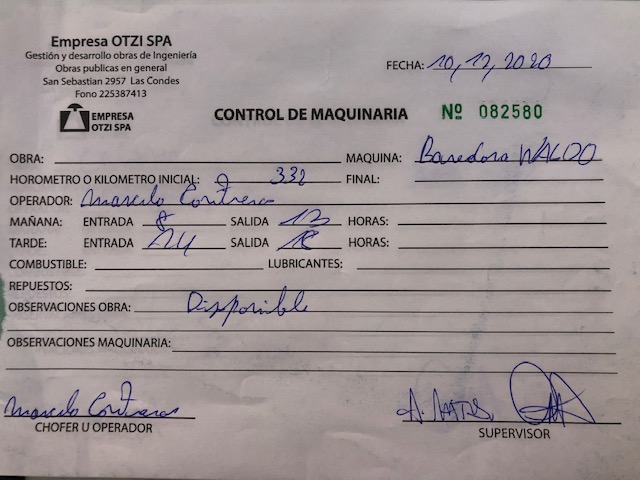 Empresa OTZI SPA
Gestión y desarrollo obras de Ingeniería
Obras publicas en general
San Sebastian 2957 Las Condes
Fono 225387413
FECHA: 10,12,2020
EMPRESA
OTZI SPA
CONTROL DE MAQUINARIA Nº 082580
OBRA: MAQUINA:
HOROMETRO O KILOMETRO INICIAL: 332 FINAL:
OPERADOR: Marcelo Contreras
MAÑANA: ENTRADA 8 SALIDA 13 HORAS:
TARDE: ENTRADA 14 SALIDA 18 HORAS:
COMBUSTIBLE: LUBRICANTES:
REPUESTOS:
OBSERVACIONES OBRA: Disponible
OBSERVACIONES MAQUINARIA:
Marcelo Contreras
CHOFER U OPERADOR
SUPERVISOR